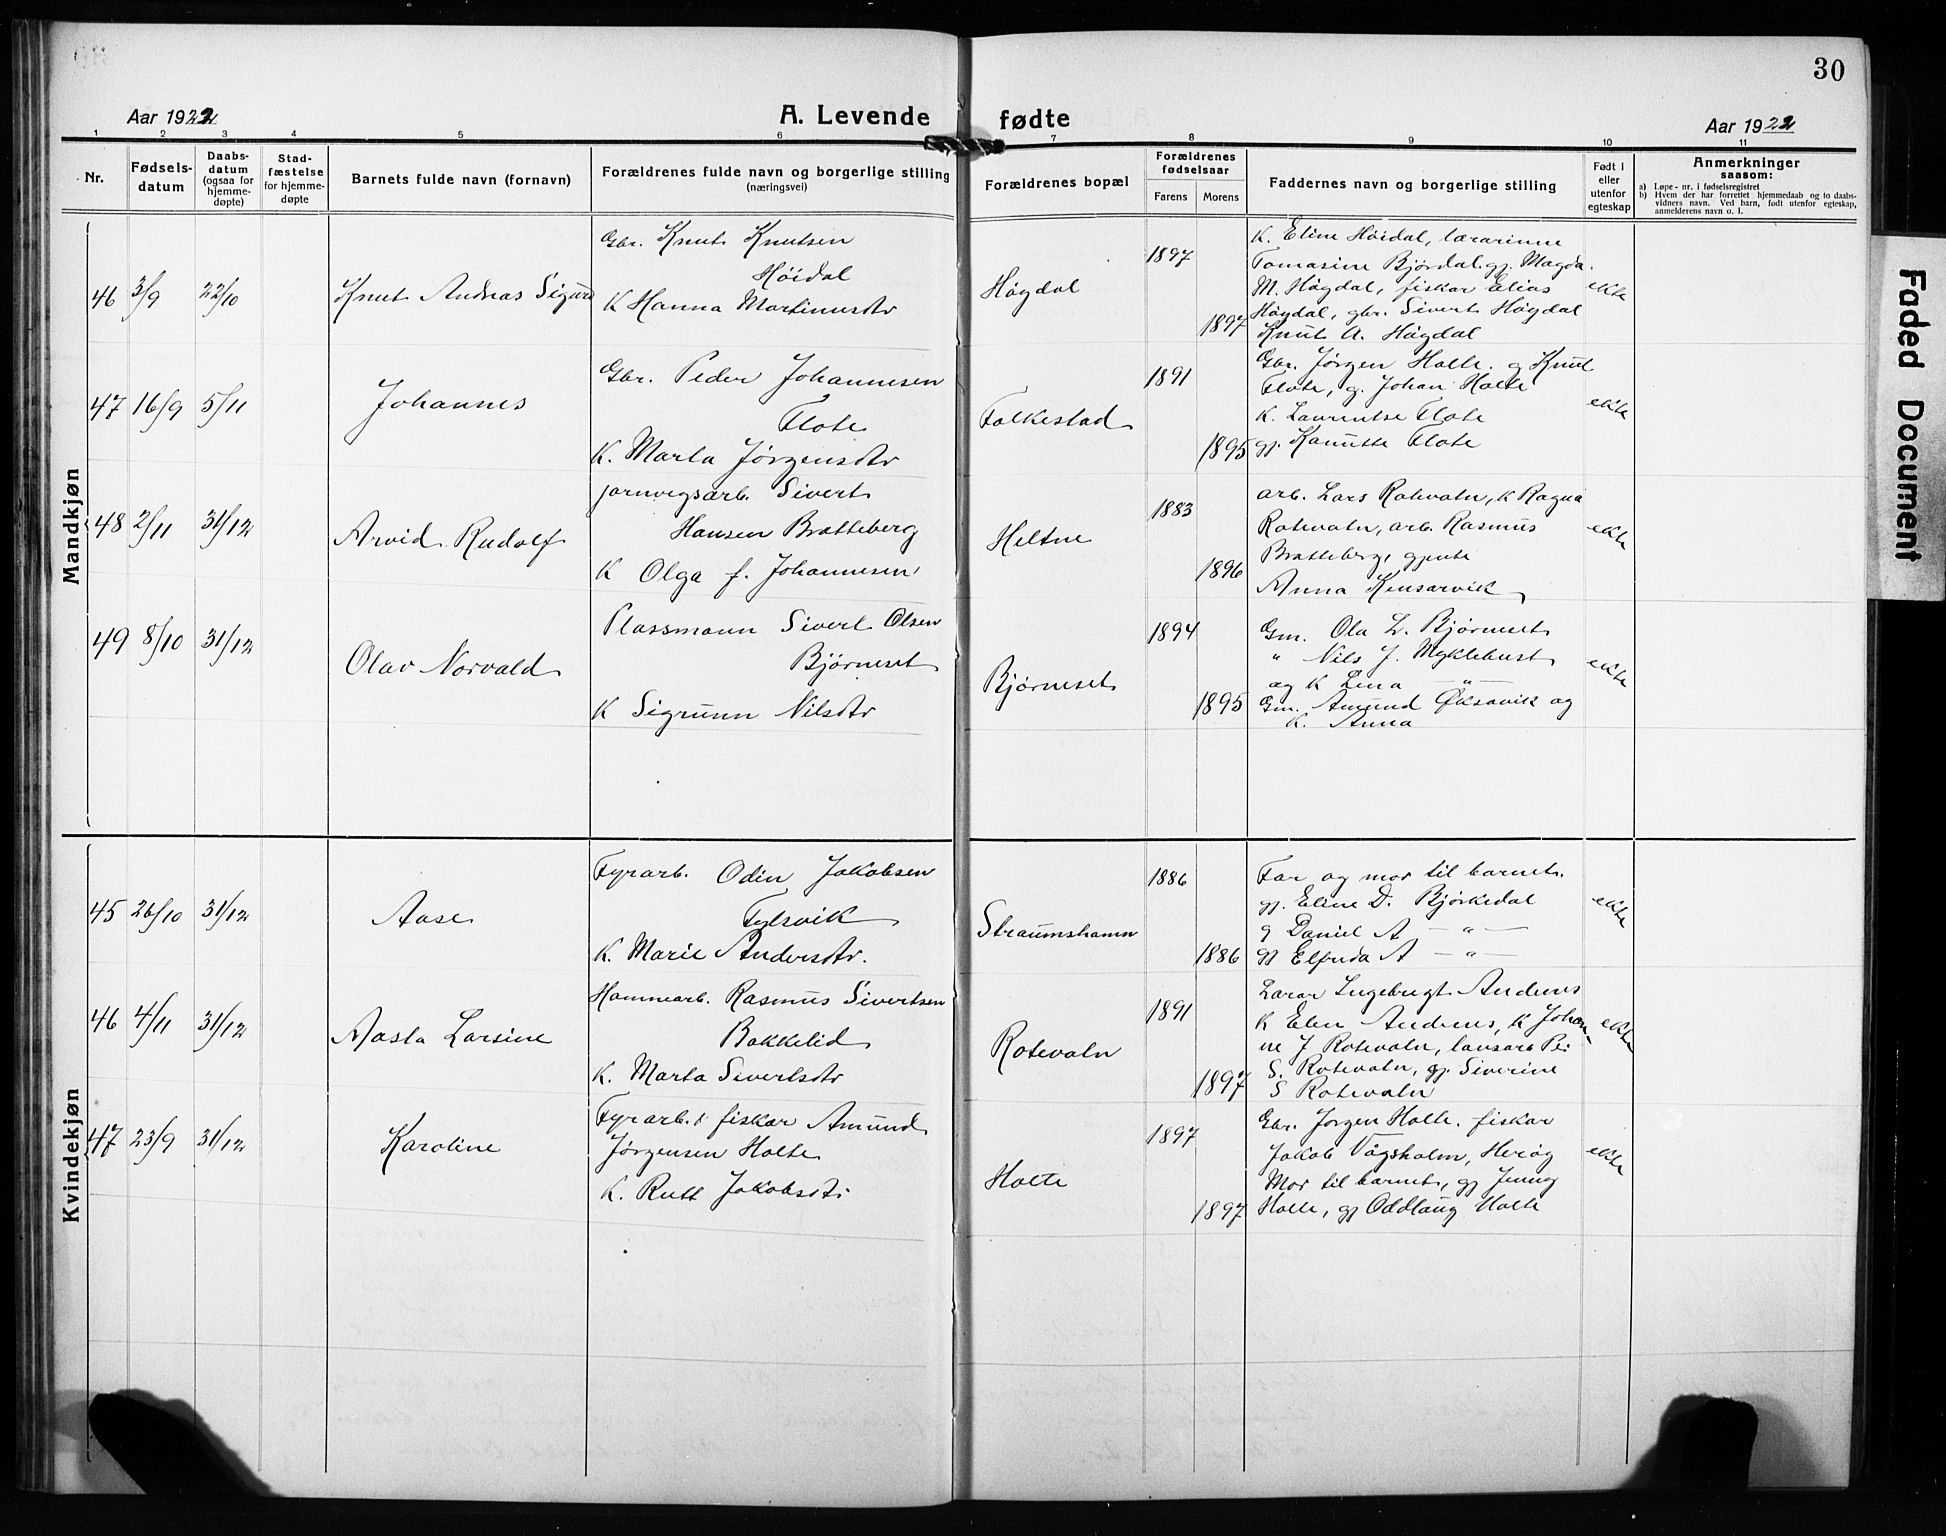 30
Aar 1922
A. Levende fødte
Aar 1922
1 2 3 4 5 6 7 8 9 10 11
Nr.
Fødsels-
datum
Daabs-
datum
(ogsaa for
hjemme-
døpte)
Stad-
fæstelse
for hjemme-
døpte
Barnets fulde navn (fornavn)
Forældrenes fulde navn og borgerlige stilling
(næringsvei)
Forældrenes bopæl
Forældrenes
fødselsaar
Farens Morens
Faddernes navn og borgerlige stilling
Født i
eller
utenfor
egteskap
Anmerkninger
saasom:
a) Løpe-nr. i fødselsregistret
b) Hvem der har forrettet hjemmedaab og to daabs-
vidners navn. Ved barn, født utenfor egteskap,
anmelderens navn o. l.
Mandkjøn
46 3/9 22/10
Knut Andreas Sigurd
Gbr. Knut Knutsen
Høidal
K Hanna Martinusdtr
Høgdal
1897
1897
K. Eline Høidal, lærarinne
Tomasine Bjørdal. gj. Magda
M. Høgdal, fiskar Elias
Høgdal, gbr. Sivert Høgdal
Knut A. Høgdal
ekte
47 16/9 5/11
Johannes
Gbr. Peder Johannesen
Flote
K. Marta Jørgensdtr
Folkestad
1891
1895
Gbr. Jørgen Holte. g Knut
Flote, g. Johan Holte
K. Laurentse Flote
gj. Kanutte Flote
ekte
48 2/11 31/12
Arvid Rudolf
jarnvegsarb. Sivert
Hansen Bratteberg
K Olga f. Johannesen
Heltne
1883
1896
arb. Lars Rotevatn, K Ragna
Rotevatn, arb. Rasmus
Bratteberg gjente
Anna Kensarvik
ekte
49 8/10 31/12
Olav Norvald
Plassmann Sivert Olsen
Bjørneset
K Sigrunn Nilsdtr
Bjørneset
1894
1895
Gm. Ola L. Bjørneset
" Nils J. Myklebust
og K Lina — " —
Gm. Amund Øksavik og
K. Anna
ekte
Kvindekjøn
45 26/10 31/12
Aase
Fyrarb. Odin Jakobsen
Fylsvik
K. Marie Andersdtr.
Straumshamn
1886
1886
Far og mor til barnet.
gj. Eline D. Bjørkedal
g Daniel A — " —
gj Elfrida A — " —
ekte
46 4/11 31/12
Aasta Larsine
Hamnearb. Rasmus Sivertsen
Bakkelid
K. Marta Sivertsdtr
Rotevatn
1891
1897
Lærar Ingebrigt Andenes
K Elen Andenes, K Johan-
ne J Rotevatn, lausarb Per
S. Rotevatn, gj. Siverine
S Rotevatn
ekte
47 23/9 31/12
Karoline
Fyrarb. & fiskar Amund
Jørgensen Holte
K. Rutt Jakobsdtr
Holte
1897
1897
Gbr. Jørgen Holte. fiskar
Jakob Vågsholm, Herøy
Mor til barnet, gj Jenny
Holte, gj Oddlaug Holte
ekte
Faded Document